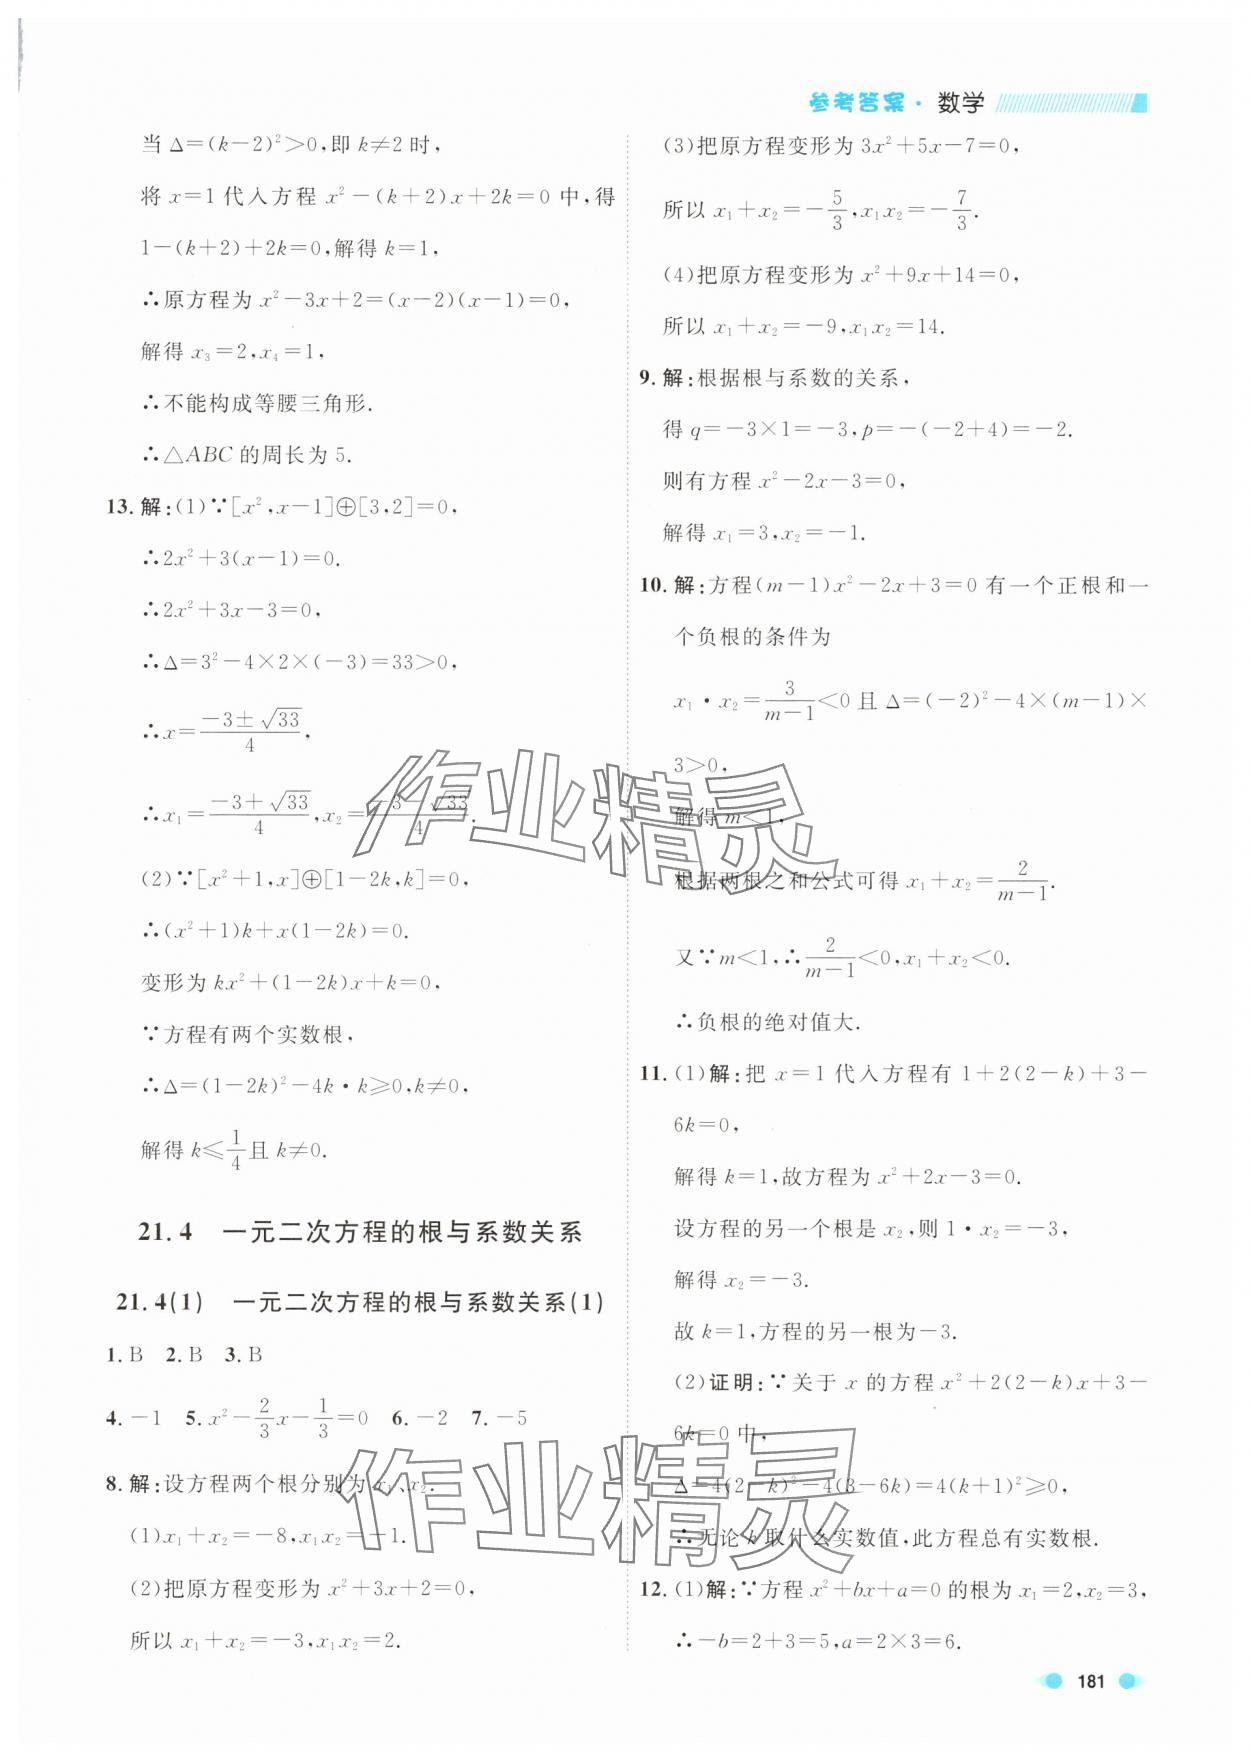 参考答案·数学
当 Δ=(k-2)²>0,即 k≠2 时,
将 x=1 代入方程 x²-(k+2)x+2k=0 中,得
1-(k+2)+2k=0,解得 k=1,
∴原方程为 x²-3x+2=(x-2)(x-1)=0,
解得 x₃=2,x₄=1,
∴不能构成等腰三角形.
∴△ABC 的周长为 5.
13.解:(1)∵[x²,x-1]⊕[3,2]=0,
∴2x²+3(x-1)=0.
∴2x²+3x-3=0,
∴Δ=3²-4×2×(-3)=33>0,
∴x=(-3±√33)/4,
∴x₁=(-3+√33)/4,x₂=(-3-√33)/4.
(2)∵[x²+1,x]⊕[1-2k,k]=0,
∴(x²+1)k+x(1-2k)=0.
变形为 kx²+(1-2k)x+k=0,
∵方程有两个实数根,
∴Δ=(1-2k)²-4k·k≥0,k≠0,
解得 k≤1/4且 k≠0.
21.4 一元二次方程的根与系数关系
21.4(1) 一元二次方程的根与系数关系(1)
1.B 2.B 3.B
4.-1 5.x²-2/3x-1/3=0 6.-2 7.-5
8.解:设方程两个根分别为 x₁、x₂.
(1)x₁+x₂=-8,x₁x₂=-1.
(2)把原方程变形为 x²+3x+2=0,
所以 x₁+x₂=-3,x₁x₂=2.
(3)把原方程变形为 3x²+5x-7=0,
所以 x₁+x₂=-5/3,x₁x₂=-7/3.
(4)把原方程变形为 x²+9x+14=0,
所以 x₁+x₂=-9,x₁x₂=14.
9.解:根据根与系数的关系,
得 q=-3×1=-3,p=-(-2+4)=-2.
则有方程 x²-2x-3=0,
解得 x₁=3,x₂=-1.
10.解:方程(m-1)x²-2x+3=0 有一个正根和一
个负根的条件为
x₁·x₂=3/(m-1)<0 且 Δ=(-2)²-4×(m-1)×
3>0,
解得 m<1,
根据两根之和公式可得 x₁+x₂=2/(m-1).
又∵m<1,∴2/(m-1)<0,x₁+x₂<0.
∴负根的绝对值大.
11.(1)解:把 x=1 代入方程有 1+2(2-k)+3-
6k=0,
解得 k=1,故方程为 x²+2x-3=0.
设方程的另一个根是 x₂,则 1·x₂=-3,
解得 x₂=-3.
故 k=1,方程的另一根为-3.
(2)证明:∵关于 x 的方程 x²+2(2-k)x+3-
6k=0 中,
Δ=4(2-k)²-4(3-6k)=4(k+1)²≥0,
∴无论 k 取什么实数值,此方程总有实数根.
12.(1)解:∵方程 x²+bx+a=0 的根为 x₁=2,x₂=3,
∴-b=2+3=5,a=2×3=6.
181
作业精灵
作业精灵